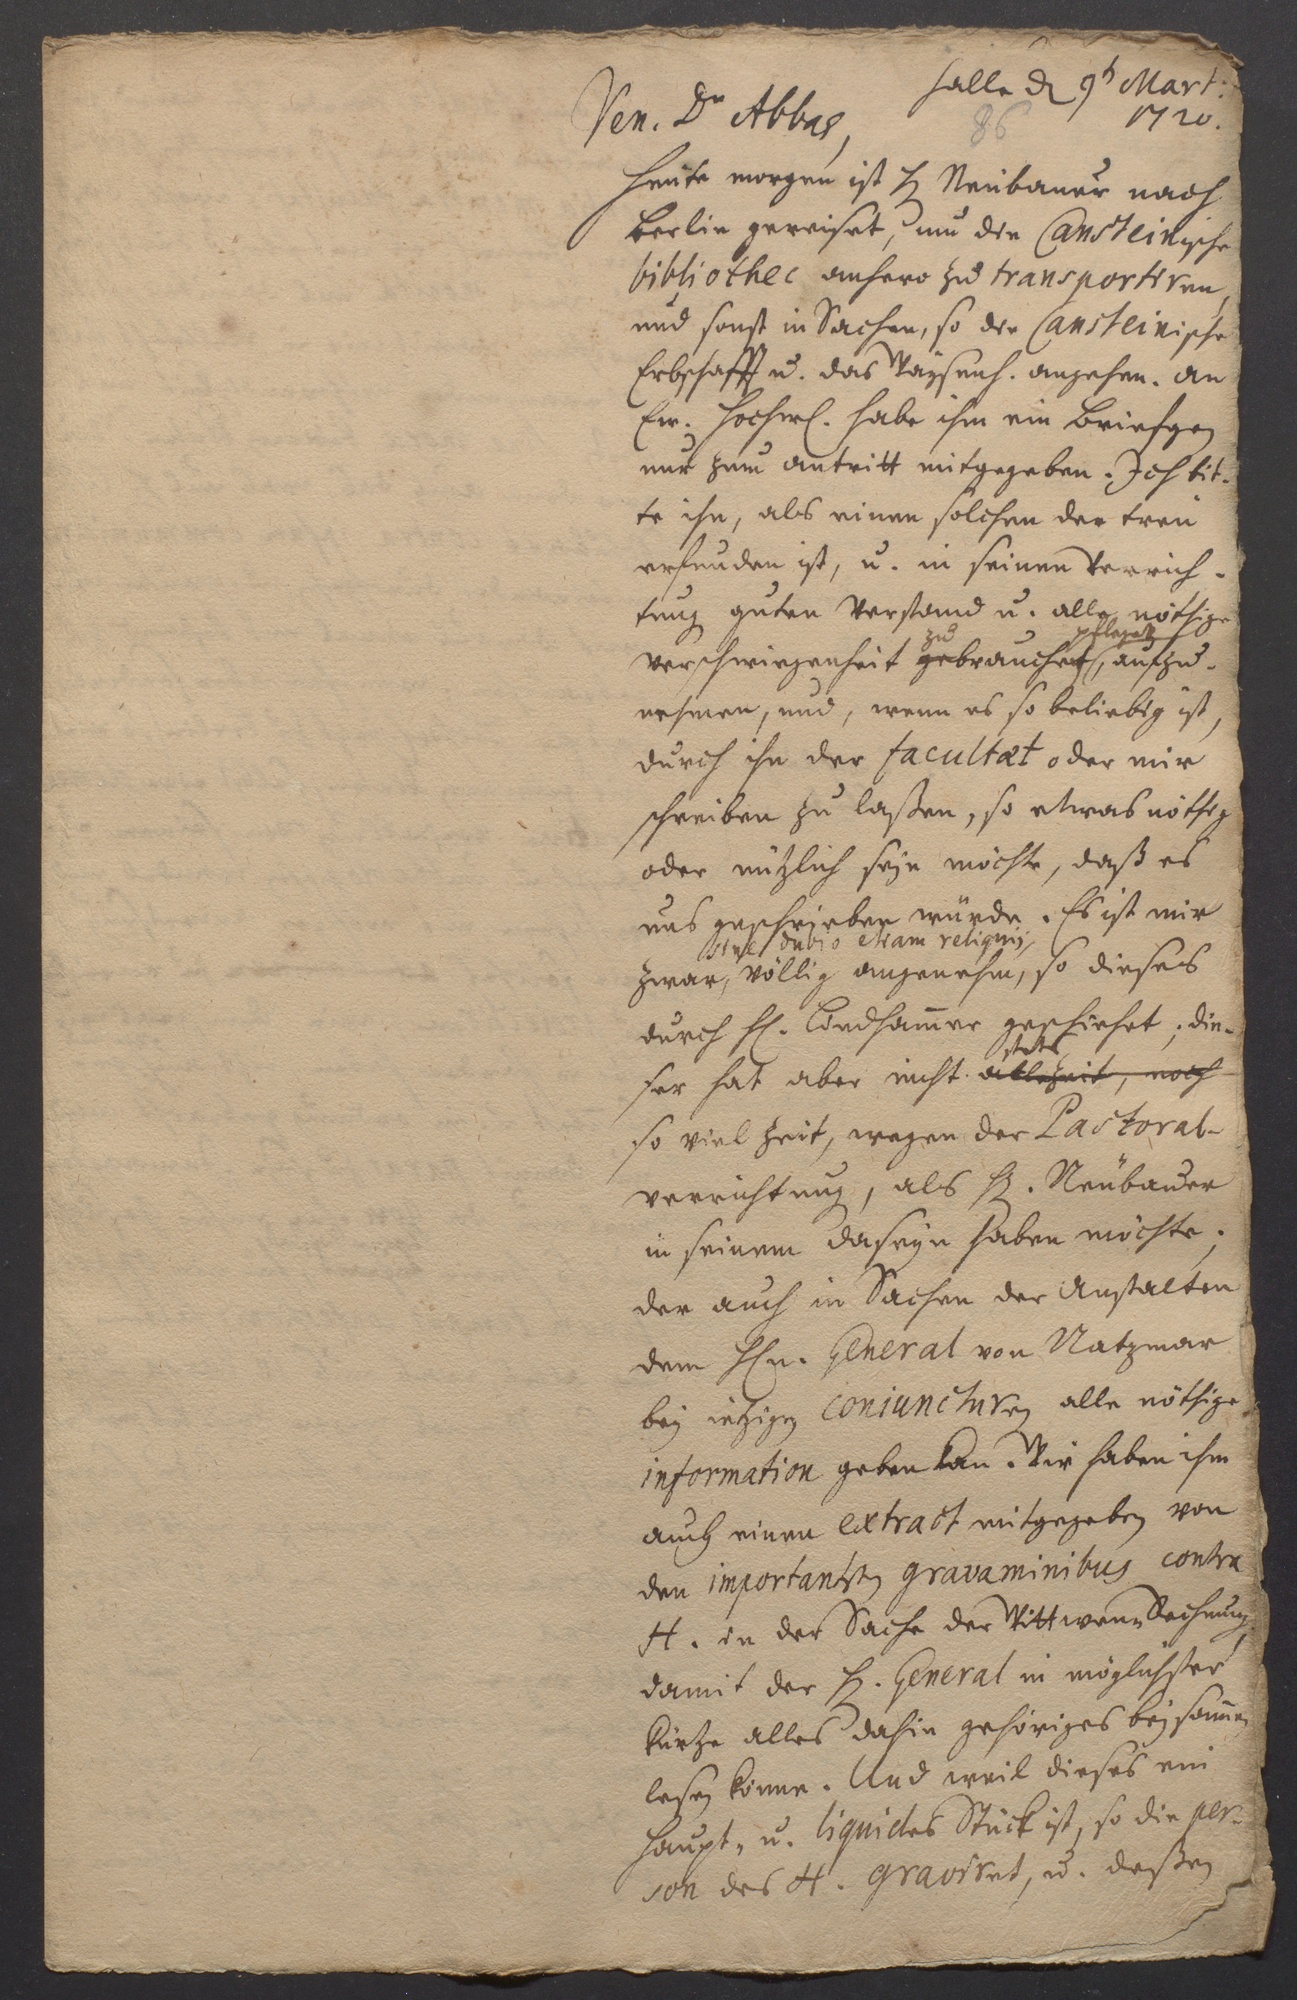 Halle d. 9t Mart:
1720.
Ven. Dn Abbas,
86
Heute morgen ist H. Neubauer nach
Berlin gereiset, um die Cansteinische
bibliothec anhero zu transportiren,
und sonst in Sachen, so die Cansteinische
Erbschafft u. das Wäysenh. angehen. An
Ew. Hochw. habe ihm ein briefgen
nur zum antritt mitgegeben. Ich bit-
te ihn, als einen solchen der treu
erfunden ist, u. in seinen Verrich-
tung guten Verstand u. alle nöthige
zu pflegt
verschwiegenheit gebrauchet, aufzu-
nehmen, und, wenn es so beliebig ist,
durch ihn der facultæt oder mir
schreiben zu laßen, so etwas nöthig
oder nützlich seyn möchte, daß es
uns geschrieben würde. Es ist mir
sine dubio etiam reliquis,
zwar, völlig angenehm, so dieses
durch H. Lindhammer geschiehet; die-
stets
ser hat aber nicht allezeit, noch
so viel Zeit, wegen der Pastoral-
verrichtung, als H. Neubauer
in seinem daseyn haben möchte;
der auch in Sachen der Anstalten
dem Hn. General von Natzmar
bey itzigen coniuncturen alle nöthige
information geben kan. Wir haben ihm
auch einen extract mitgegeben von
den importantsten gravaminibus contra
H. in der Sache der Wittwen-Rechnung,
damit der H. General in möglichster
Kürtze alles dahin gehöriges beysammen
lesen könne. Und weil dieses ein
haupt- u. liquides Stück ist, so die per-
son des H. graviret, u. deßen